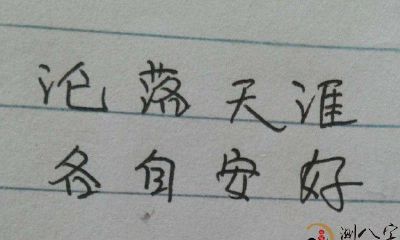 沦落天涯
各自安好
测八字